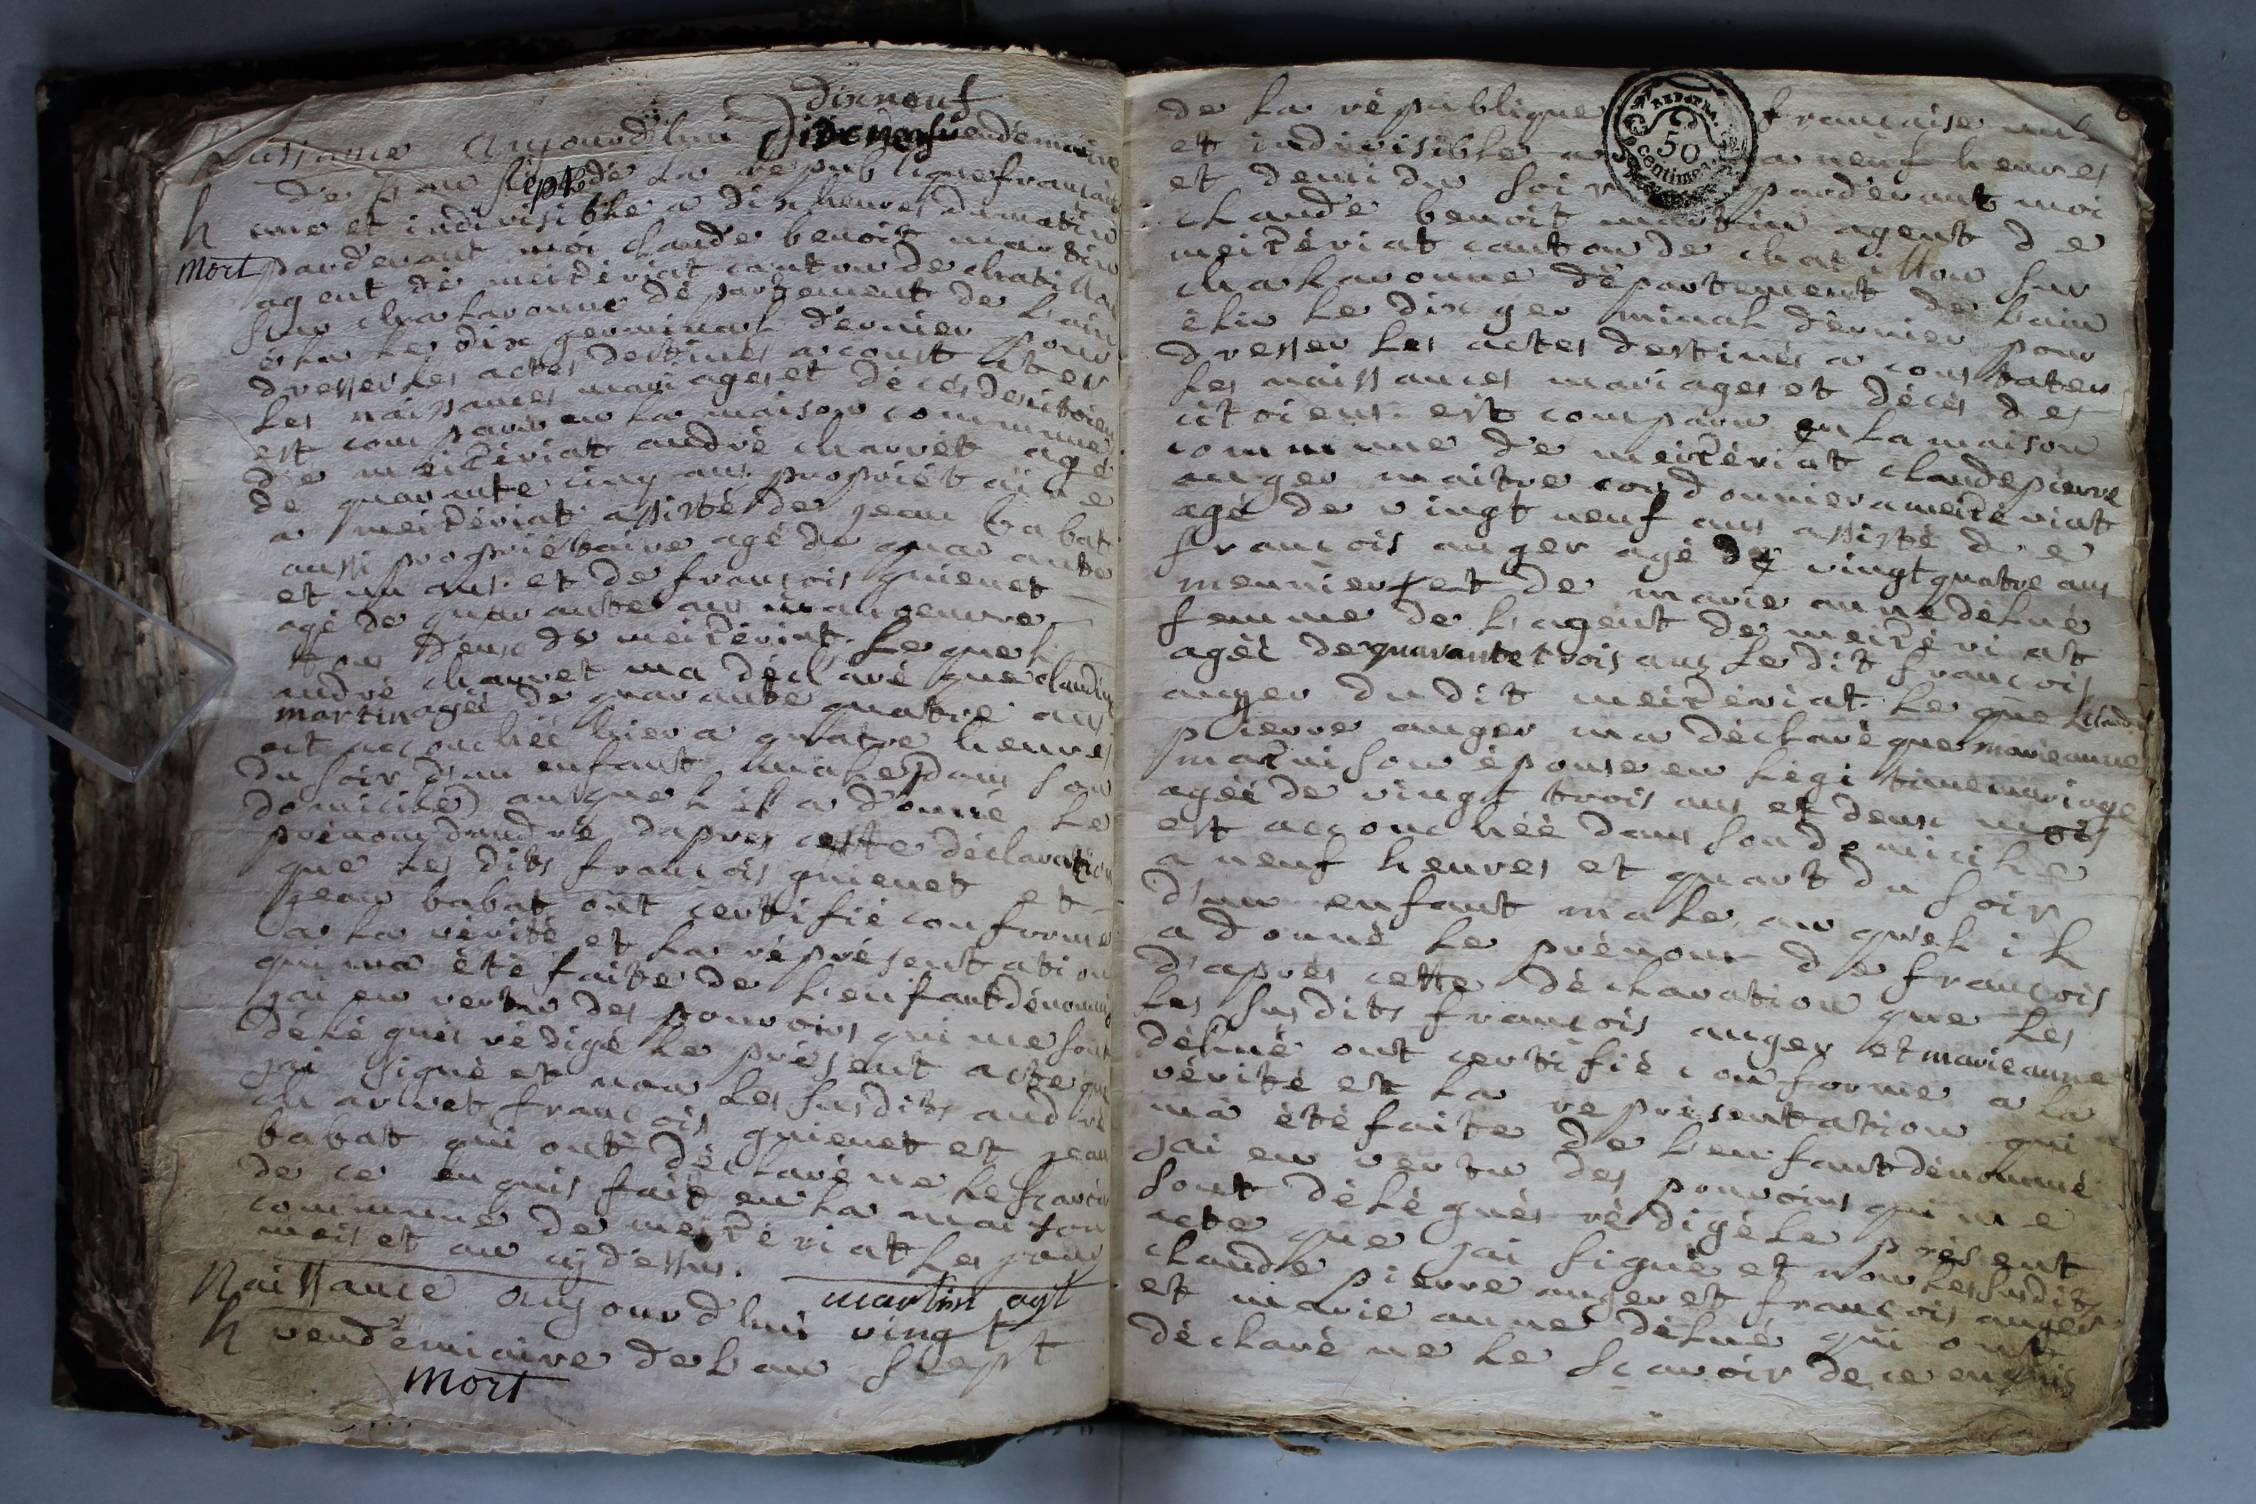 dixneuf
Naissance aujourd'hui vendemiaire
de l'an sept de la republique française
h une et indivisible a dix heures du matin
mort pardevant moi claude benoit martin
agent de meizériat canton de chatillon
sur chalaronne département de l'ain
élu le dix germinal dernier pour
dresser les actes destinés a constater
les naissances mariages et décés des citoiens
est comparu en la maison commune
de meizériat andré charvet agé
de quarante cinq ans propriétaire
a meizériat assisté de jean babat
aussi propriétaire agé de quarante
et un ans. et de françois guienet
agé de quarante ans manoeuvre
tous deux de meizériat. lequel
andré charvet ma déclaré que claudine
martin agéé de quarante quatre ans
est accouchéé hier a quatre heures
du soir d'un enfant male (dans son
domicile) auquel il a donné le
prénom d'andré d'apres cette déclaration
que les dits françois guienet et
jean babat ont certifié conforme
a la vérité et la réprésentation
qui ma été faite de l'enfant dénommé
jai en vertu des pouvoirs qui me sont
délégués rédigé le présent acte que
jai signé et non les susdits andré
charvet françois guienet et jean
babat qui ont déclaré ne le sçavoir
de ce enquis fait en la maison
commune de meizériat les jour
mois et an cy dessus.
martin agt
Naissance aujourd'hui vingt
h vendémiaire de l'an sept
mort
6
de la république française une
et indivisible a neuf heures
et demi du soir pardevant moi
claude benoit martin agent de
meizériat canton de chatillon sur
chalaronne département de l'ain
élu le dix germinal dernier pour
dresser les actes destinés a constater
les naissances mariages et décés des
citoiens. est comparu en la maison
commune de meizériat claude pierre
anger maitre cordonnier a meizériat
agé de vingt neuf ans assisté de
françois anger agé de vingt quatre ans
meunier et de marie anne délué
femme de l'agent de meizériat
agéé de quarante trois ans le dit françois
anger du dit meizériat. lequel claude
pierre anger ma déclaré que marie anne
son épouse en légitime mariage
agéé de vingt trois ans et deux mois
est accouchéé dans son domicile
a neuf heures et quart du soir
d'un enfant male, auquel il
a donné le prénom de françois
d'aprés cette déclaration que les
les susdits françois anger et marie anne
délué ont certifié conforme a la
vérité et la représentation qui
ma été faite de l'enfant dénommé
jai en vertu des pouvoirs qui me
sont délégués rédigé le présent
acte que jai signé et non les susdits
claude pierre anger et françois anger
et marie anne délué qui ont
déclaré ne le sçavoir de ce enquis
50
centimes